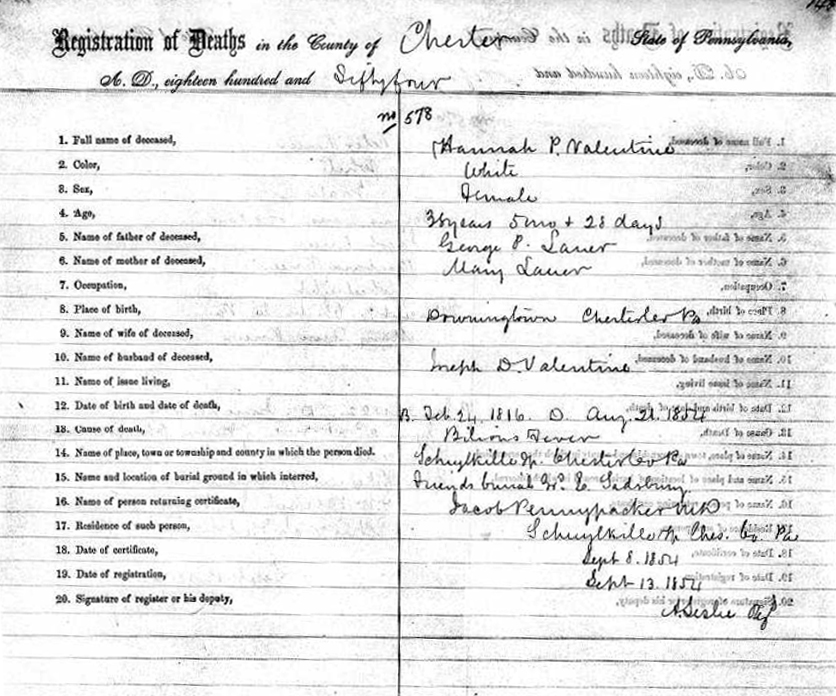 Registration of Deaths in the County of Chester State of Pennsylvania,
A. D., eighteen hundred and Fiftyfour
No 578
1. Full name of deceased, Hannah P. Valentine
2. Color, White
3. Sex, Female
4. Age, 38 years 5 mo + 28 days
5. Name of father of deceased, George P. Lauer
6. Name of mother of deceased, Mary Lauer
7. Occupation,
8. Place of birth, Downingtown Chester Co Pa
9. Name of wife of deceased,
10. Name of husband of deceased, Joseph D. Valentine
11. Name of issue living,
12. Date of birth and date of death, B. Feb. 24, 1816. D. Aug. 21. 1854
13. Cause of death, Bilious Fever
14. Name of place, town or township and county in which the person died. Schuylkill Tp. Chester Co Pa
15. Name and location of burial ground in which interred, Friends burial
16. Name of person returning certificate, Jacob Pennypacker MD
17. Residence of such person, Schuylkill Tp Ches. Co. Pa
18. Date of certificate, Sept 8. 1854
19. Date of registration, Sept 13. 1854
20. Signature of register or his deputy, A. Leslie